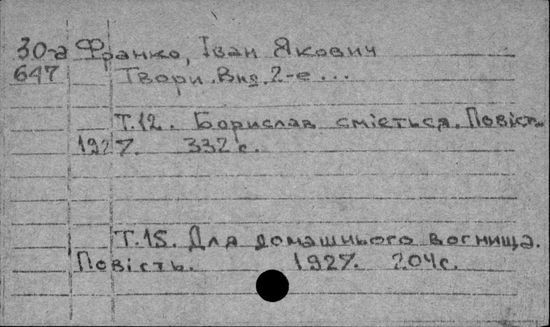 30-а Франко, Іван Якович
647 Твори. Вид. 2-е...
Т.12. Борислав сміється. Повість.
1927. 332 с.
Т.15. Для домашнього вогнища.
Повість. 1927. 204с.